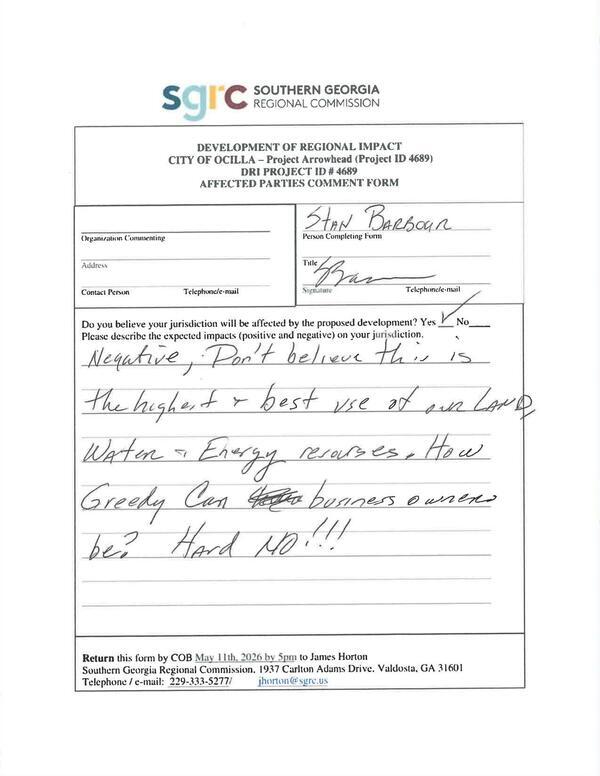 sgrc SOUTHERN GEORGIA
REGIONAL COMMISSION
DEVELOPMENT OF REGIONAL IMPACT
CITY OF OCILLA – Project Arrowhead (Project ID 4689)
DRI PROJECT ID # 4689
AFFECTED PARTIES COMMENT FORM
Organization Commenting
Address
Contact Person Telephone/e-mail
STAN BARBOUR
Person Completing Form
Title
Signature Telephone/e-mail
Do you believe your jurisdiction will be affected by the proposed development? Yes ✓ No
Please describe the expected impacts (positive and negative) on your jurisdiction.
Negative, Don't believe this is
the highest + best use of our LAND,
Water + Energy resourses. How
Greedy Can business owners
be? Hard NO!!!
Return this form by COB May 11th, 2026 by 5pm to James Horton
Southern Georgia Regional Commission, 1937 Carlton Adams Drive, Valdosta, GA 31601
Telephone / e-mail: 229-333-5277/ jhorton@sgrc.us